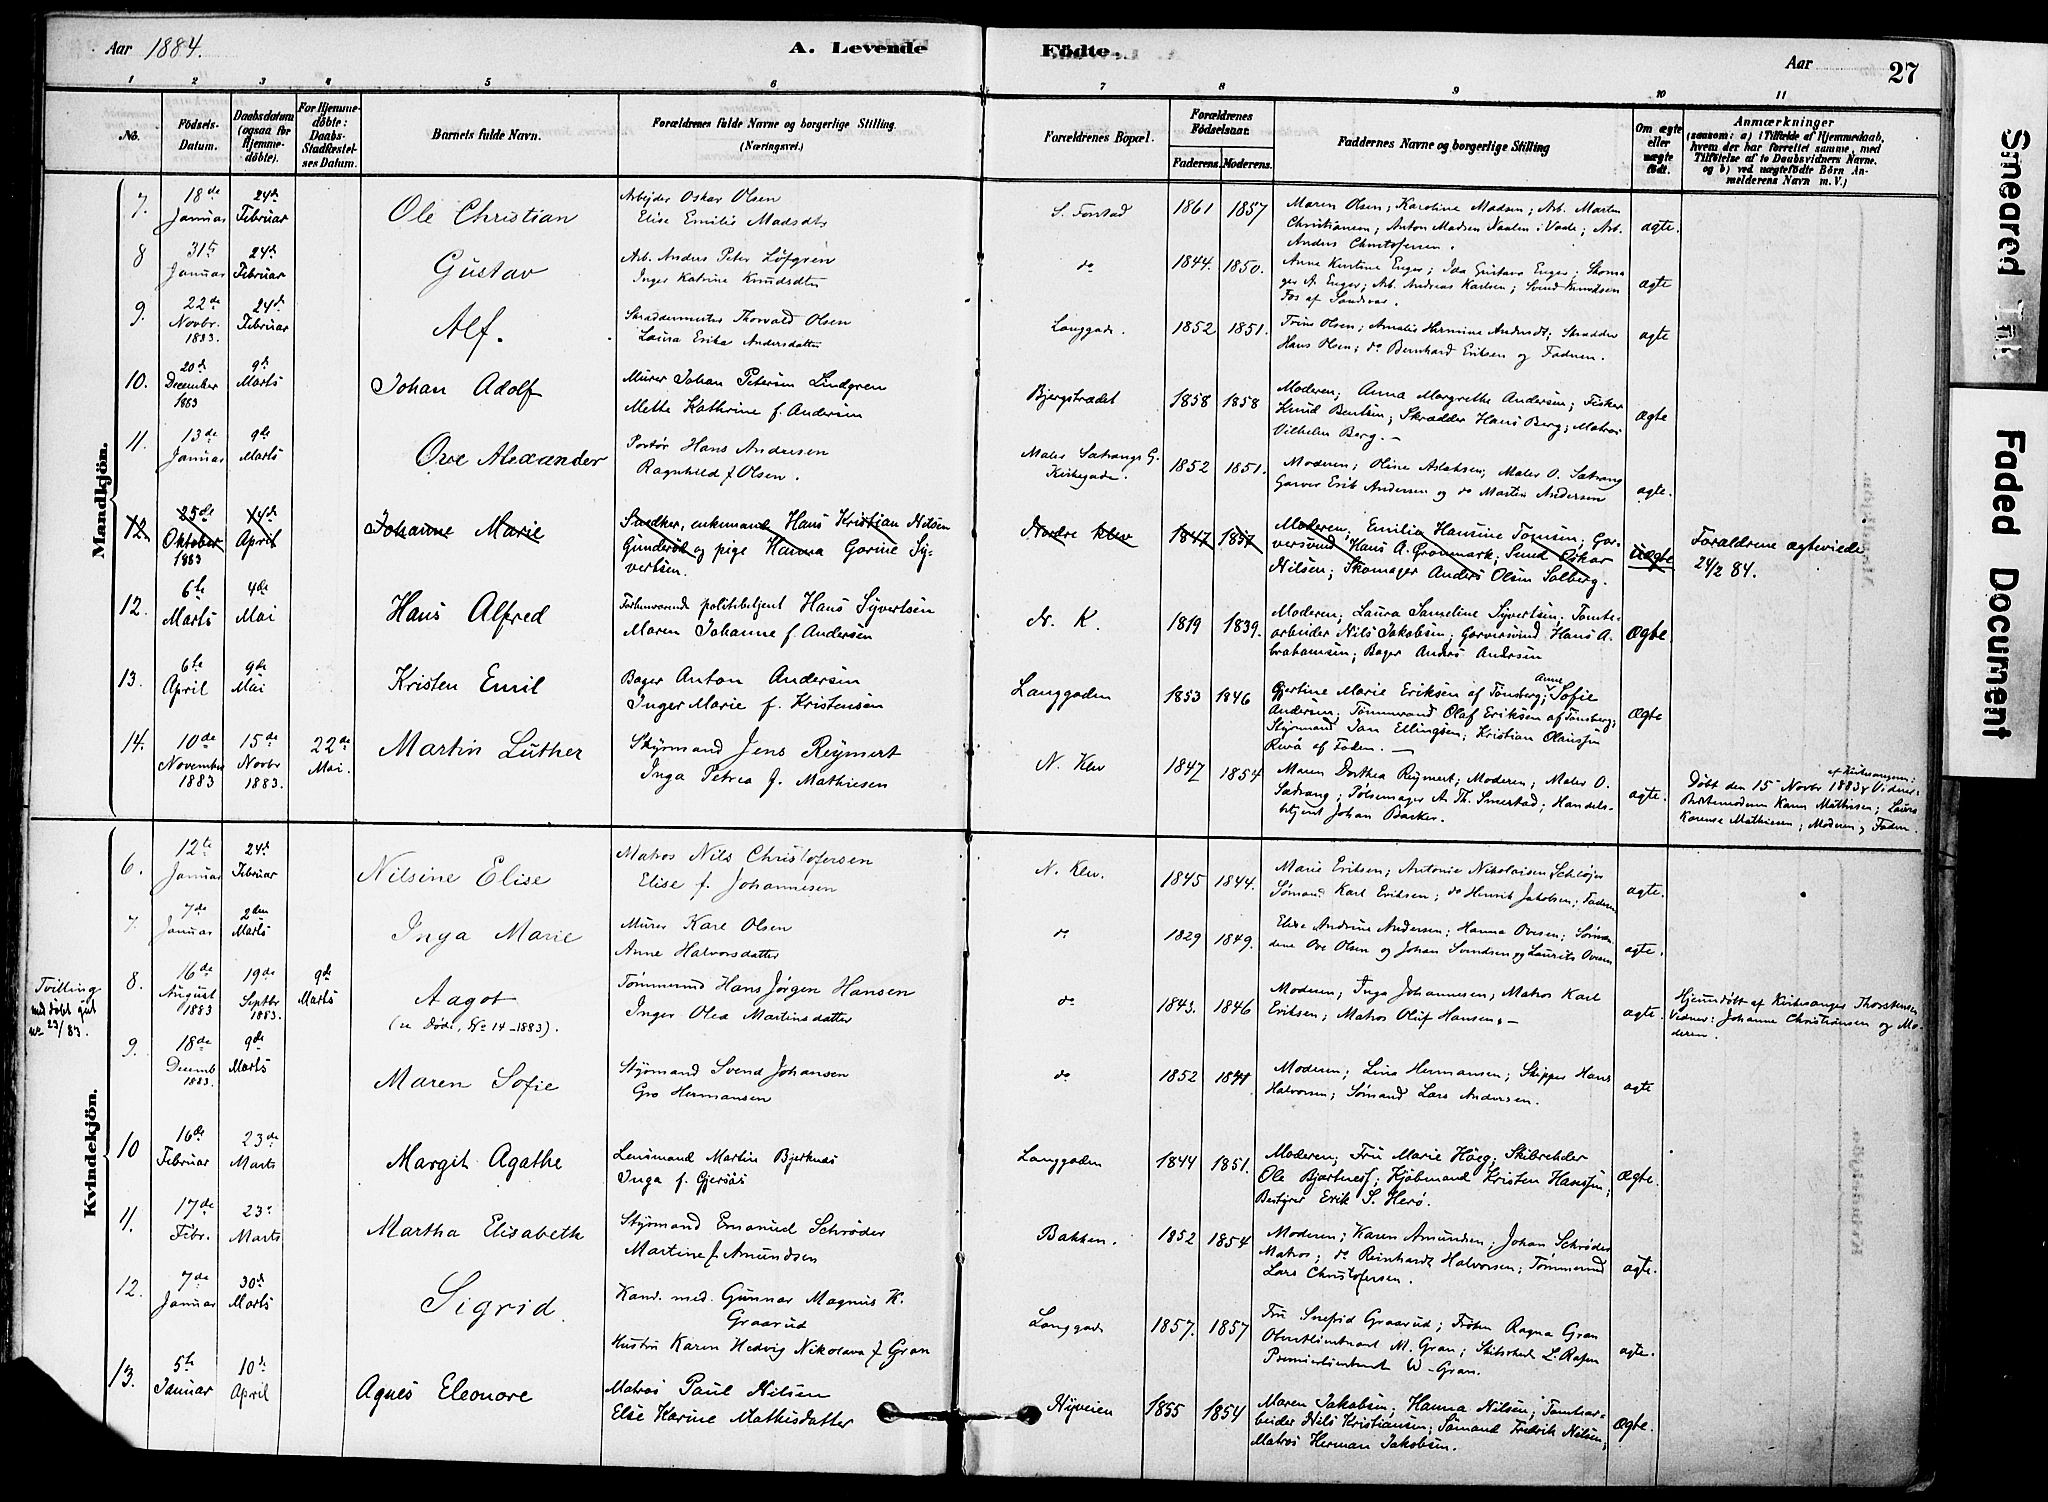 Aar 1884.
A. Levende
Födte.
Aar
27
1 2 3 4 5 6 7 8 9 10 11
No.
Födsels-Datum.
Daabsdatum (ogsaa for Hjemmedöbte).
For Hjemmedöbte: Daabs-Stadfæstelses Datum.
Barnets fulde Navn.
Forældrenes fulde Navne og borgerlige Stilling.
(Næringsvei.)
Forældrenes Bopæl.
Forældrenes Födselsaar.
Faderens. Moderens.
Faddernes Navne og borgerlige Stilling
Om ægte eller uægte födt.
Anmærkninger
(saasom: a) i Tilfælde af Hjemmedaab,
hvem der har forrettet samme, med
Tilföielse af to Daabsvidners Navne.
og b) ved uægtefödte Börn Anmelderens Navn m. V.)
Mandkjön.
7. 18de Januar 24de Februar Ole Christian
Arbejder Oskar Olsen
Elise Emilie Madsdtr
S. Forstad 1861 1857
Maren Olsen; Karoline Madsen; Arb. Martin
Christiansen; Anton Madsen Naalen i Vaale; Arb.
Anders Christofersen.
ægte.
8 31te Januar 24de Februar Gustav
Arb. Anders Peter Löfgren
Inger Katrine Knudsdtr
do 1844. 1850.
Anne Kirstine Enger; Ida Gustava Enger; Skomager A. Enger; Arb. Andreas Karlsen; Svend Knudsen
Fos af Sandsvær.
ægte
9. 22de Novbr. 1883. 24de Februar Alf.
Skræddermester Thorvald Olsen
Laura Erika Andersdatter
Langgade. 1852 1851.
Trine Olsen; Amalie Hermine Andersdt; Skrædder
Hans Olsen; do Bernhard Eriksen og Faderen.
ægte
10. 20de December 1883 9de Marts Johan Adolf
Murer Johan Petersen Lindgren
Mette Kathrine f. Andersen
Bjergstrædet 1858 1858
Moderen; Anna Margrethe Andersen; Fisker
Knud Bentsen; Skrædder Hans Berg; Matros
Vilhelm Berg. –
Ægte
11. 13de Januar 9de Marts Ove Alexander
Portör Hans Andersen
Ragnhild f Olsen.
Maler Sætrangs G. Kirkegade. 1852 1851.
Moderen; Oline Aslaksen; Maler O. Sætrang
Garver Erik Andersen og do Martin Andersen
ægte.
12. 25de Oktober 1883 14de April Johanne Marie
Snedker, enkemand Hans Kristian Nilsen
Gunderöd og pige Hanna Gorine Syvertsen.
Nordre Klev 1847 1857
Moderen, Emilie Hansine Tomsen; Garversvend Hans A. Grönmark; Smed Oskar
Nilsen; Skomager Anders Olsen Solberg.
uægte
Forældrene ægteviede
24/2 84.
12. 6te Marts 4de Mai Hans Alfred
Forhenværende politibetjent Hans Syvertsen
Maren Johanne f. Andersen
N. K. 1819 1839.
Moderen; Laura Samuline Syvertsen; Tomtearbeider Nils Jakobsen; Garversvend Hans Abrahamsen; Bager Anders Andersen
Ægte
13. 6te April 9de Mai Kristen Emil
Bager Anton Andersen
Inger Marie f. Kristensen
Langgaden 1853 1846
Gjertine Marie Eriksen af Tönsberg; Anne Sofie
Andersen; Tömmermand Olaf Eriksen af Tönsberg;
Styrmand Jan Ellingsen; Kristian Olaussen
Revå af Faden. –
Ægte
14. 10de November 1883 15de Novbr 1883. 22de Mai. Martin Luther
Styrmand Jens Reymert
Inga Petrea f. Mathiesen
N. Klev 1847 1854
Maren Dorthea Reymert; Moderen; Maler O.
Sætrang; Pölsemager A. Th. Smerstad; Handelsbetjent Johan Backer.
ægte.
Döbt den 15 Novbr 1883 af Kirkesangeren; Vidner:
Karen Mathisen; Laura
Karense Mathiesen; Moderen; Faderen.
Kvindekjön.
6. 12te Januar 24de Februar Nilsine Elise
Matros Nils Christofersen
Elise f. Johannesen
N. Klev. 1845 1844.
Marie Eriksen; Antonie Nikolaisen Schlöjer
Sömand Karl Eriksen; do Henrik Jakobsen; Faderen
ægte.
7. 7de Januar 2den Marts Inga Marie
Murer Karl Olsen
Anne Halvorsdatter
do 1829 1849.
Elise Andrine Andersen; Hanna Ovesen; Sömændene Ove Olsen og Johan Svendsen og Laurits Ovesen
ægte.
Tvilling
med döbt gut
No 23/83.
8. 16de August 1883 19de Septbr 1883. 9de Marts Aagot
(se Döde, No 14-1883).
Tömmermd Hans Jörgen Hansen
Inger Olea Martinsdatter
do 1843. 1846
Moderen; Inga Johannesen; Matros Karl
Eriksen; Matros Oluf Hansen. –
ægte.
Hjemmedöbt af Kirkesanger Thorstensen
Vidner: Johanne Christiansen og Moderen.
9. 18de Decemb 1883. 9de Marts Maren Sofie
Styrmand Svend Johansen
Gro Hermansen
do 1852 1841
Moderen; Lina Hermansen; Skipper Hans
Halvorsen; Sömand Lars Andersen.
ægte
10 16de Februar 23de Marts Margit Agathe
Lensmand Martin Bjerknæs
Inga f. Gjersöe
Langgaden 1844 1851.
Moderen; Fru Marie Höeg; Skibsreder
Ole Bjerknes; Kjöbmand Kristen Hanssen;
Bestyrer Erik S. Herö.
Ægte.
11. 17de Febr. 23de Marts Martha Elisabeth
Styrmand Emanuel Schröder
Martine f. Amundsen
Bakken. 1852 1854
Moderen; Karen Amundsen; Johan Schröder
Matros; do Reinhardt Halvorsen; Tömmermd
Lars Christofersen.
ægte.
12. 7de Januar 30de Marts Sigrid.
Kand. med. Gunnar Magnus K.
Graarud
Hustru Karen Hedvig Nikolava f Gran
Langgade 1857. 1857
Fru Snefrid Graarud; Fröken Ragna Gran
Oberstlieutnant M. Gran; Skibsred. L. Rafen
Premierlieutnant W. Gran.
ægte.
13. 5te Januar 10de April Agnes Eleonore
Matros Paul Nilsen
Else Karine Mathisdatter
Nyveien 1855 1854
Maren Jakobsen; Hanna Nilsen; Tomtearbeider Nils Kristiansen; Sömand Fredrik Nilsen;
Matros Herman Jakobsen.
Ægte.
Smeared Ink
Faded Document